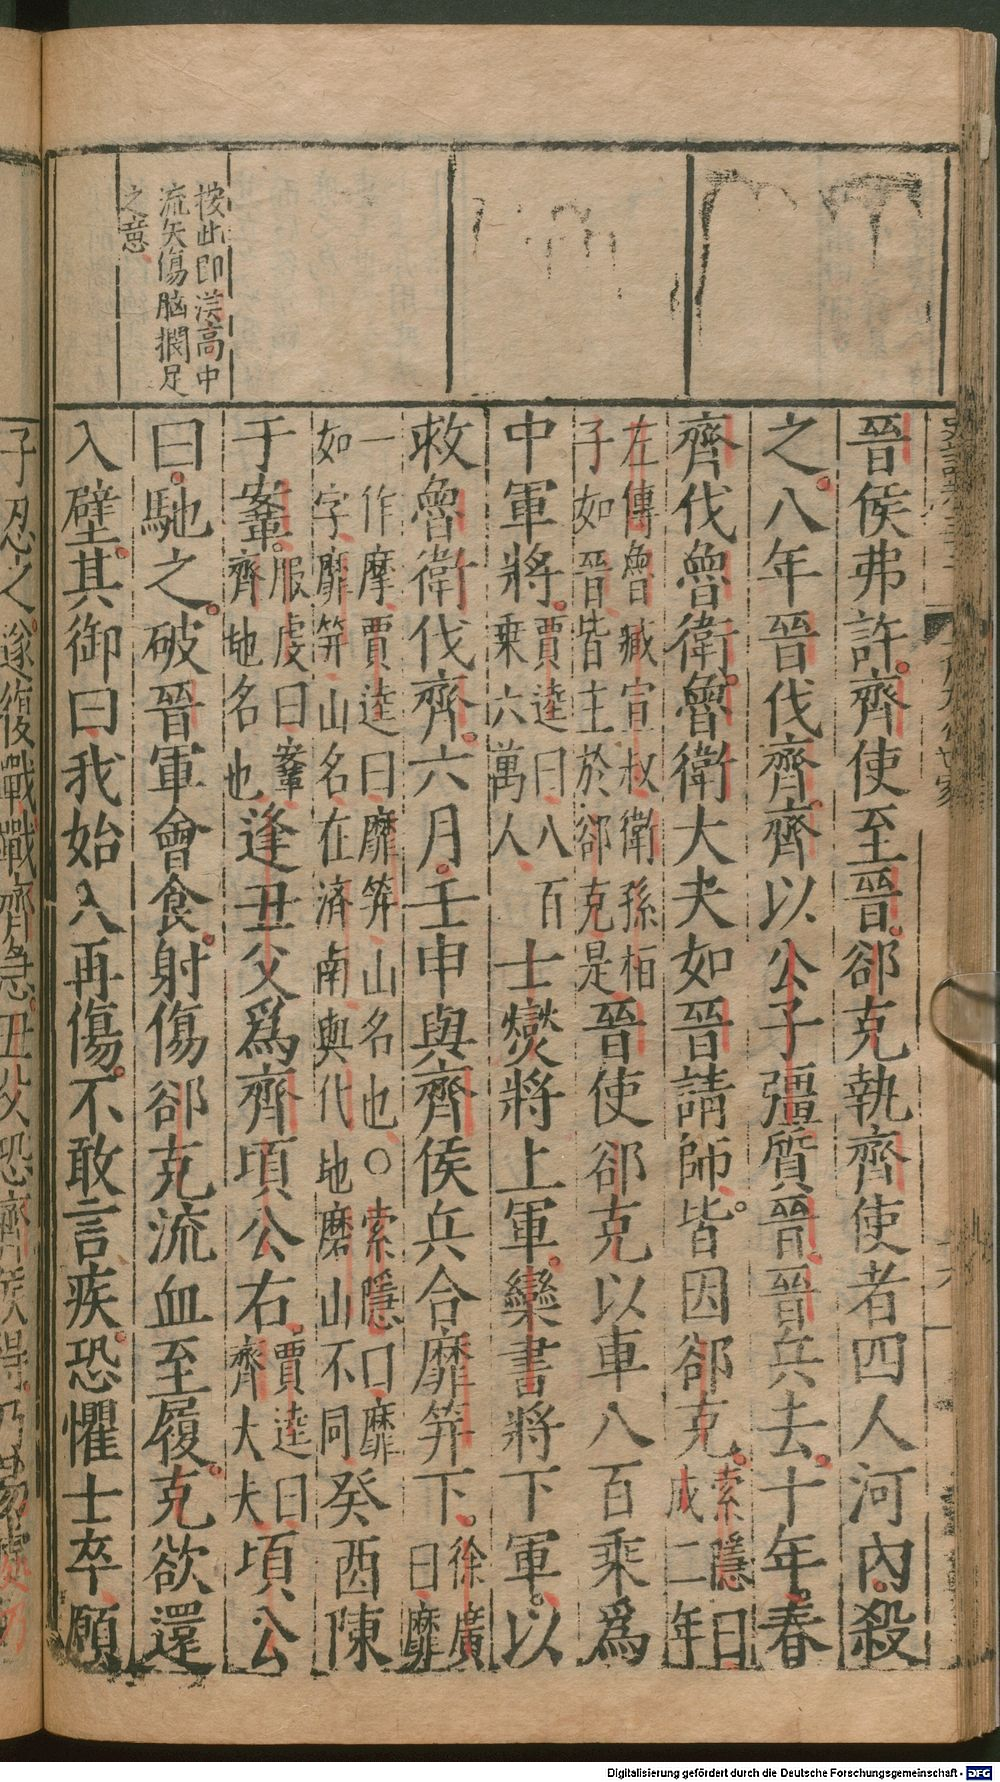 按此即漢高中
流矢傷腦捫足
之意
晉侯弗許齊使至晉郤克執齊使者四人河內殺
之八年晉伐齊齊以公子彊質晉晉兵去十年春
齊伐魯衛魯衛大夫如晉請師皆因郤克索隱曰成二年
左傳魯臧宣叔衛孫桓子如晉皆主於郤克是晉使郤克以車八百乘為
中軍將賈逵曰八百乘六萬人士燮將上軍欒書將下軍以
救魯衛伐齊六月壬申與齊侯兵合靡笄下徐廣曰靡
一作摩賈逵曰靡笄山名也○索隱曰靡如字靡笄山名在済南與代地磨山不同癸酉陳
于鞌服虔曰鞌齊地名也逢丑父爲齊頃公右賈逵曰齊大夫頃公
曰馳之破晉軍會食射傷郤克流血至履克欲還
入壁其御曰我始入再傷不敢言疾恐懼士卒願
子忍之遂復戰戰齊急丑父恐齊侯得乃
Digitalisierung gefördert durch die Deutsche Forschungsgemeinschaft - DFG